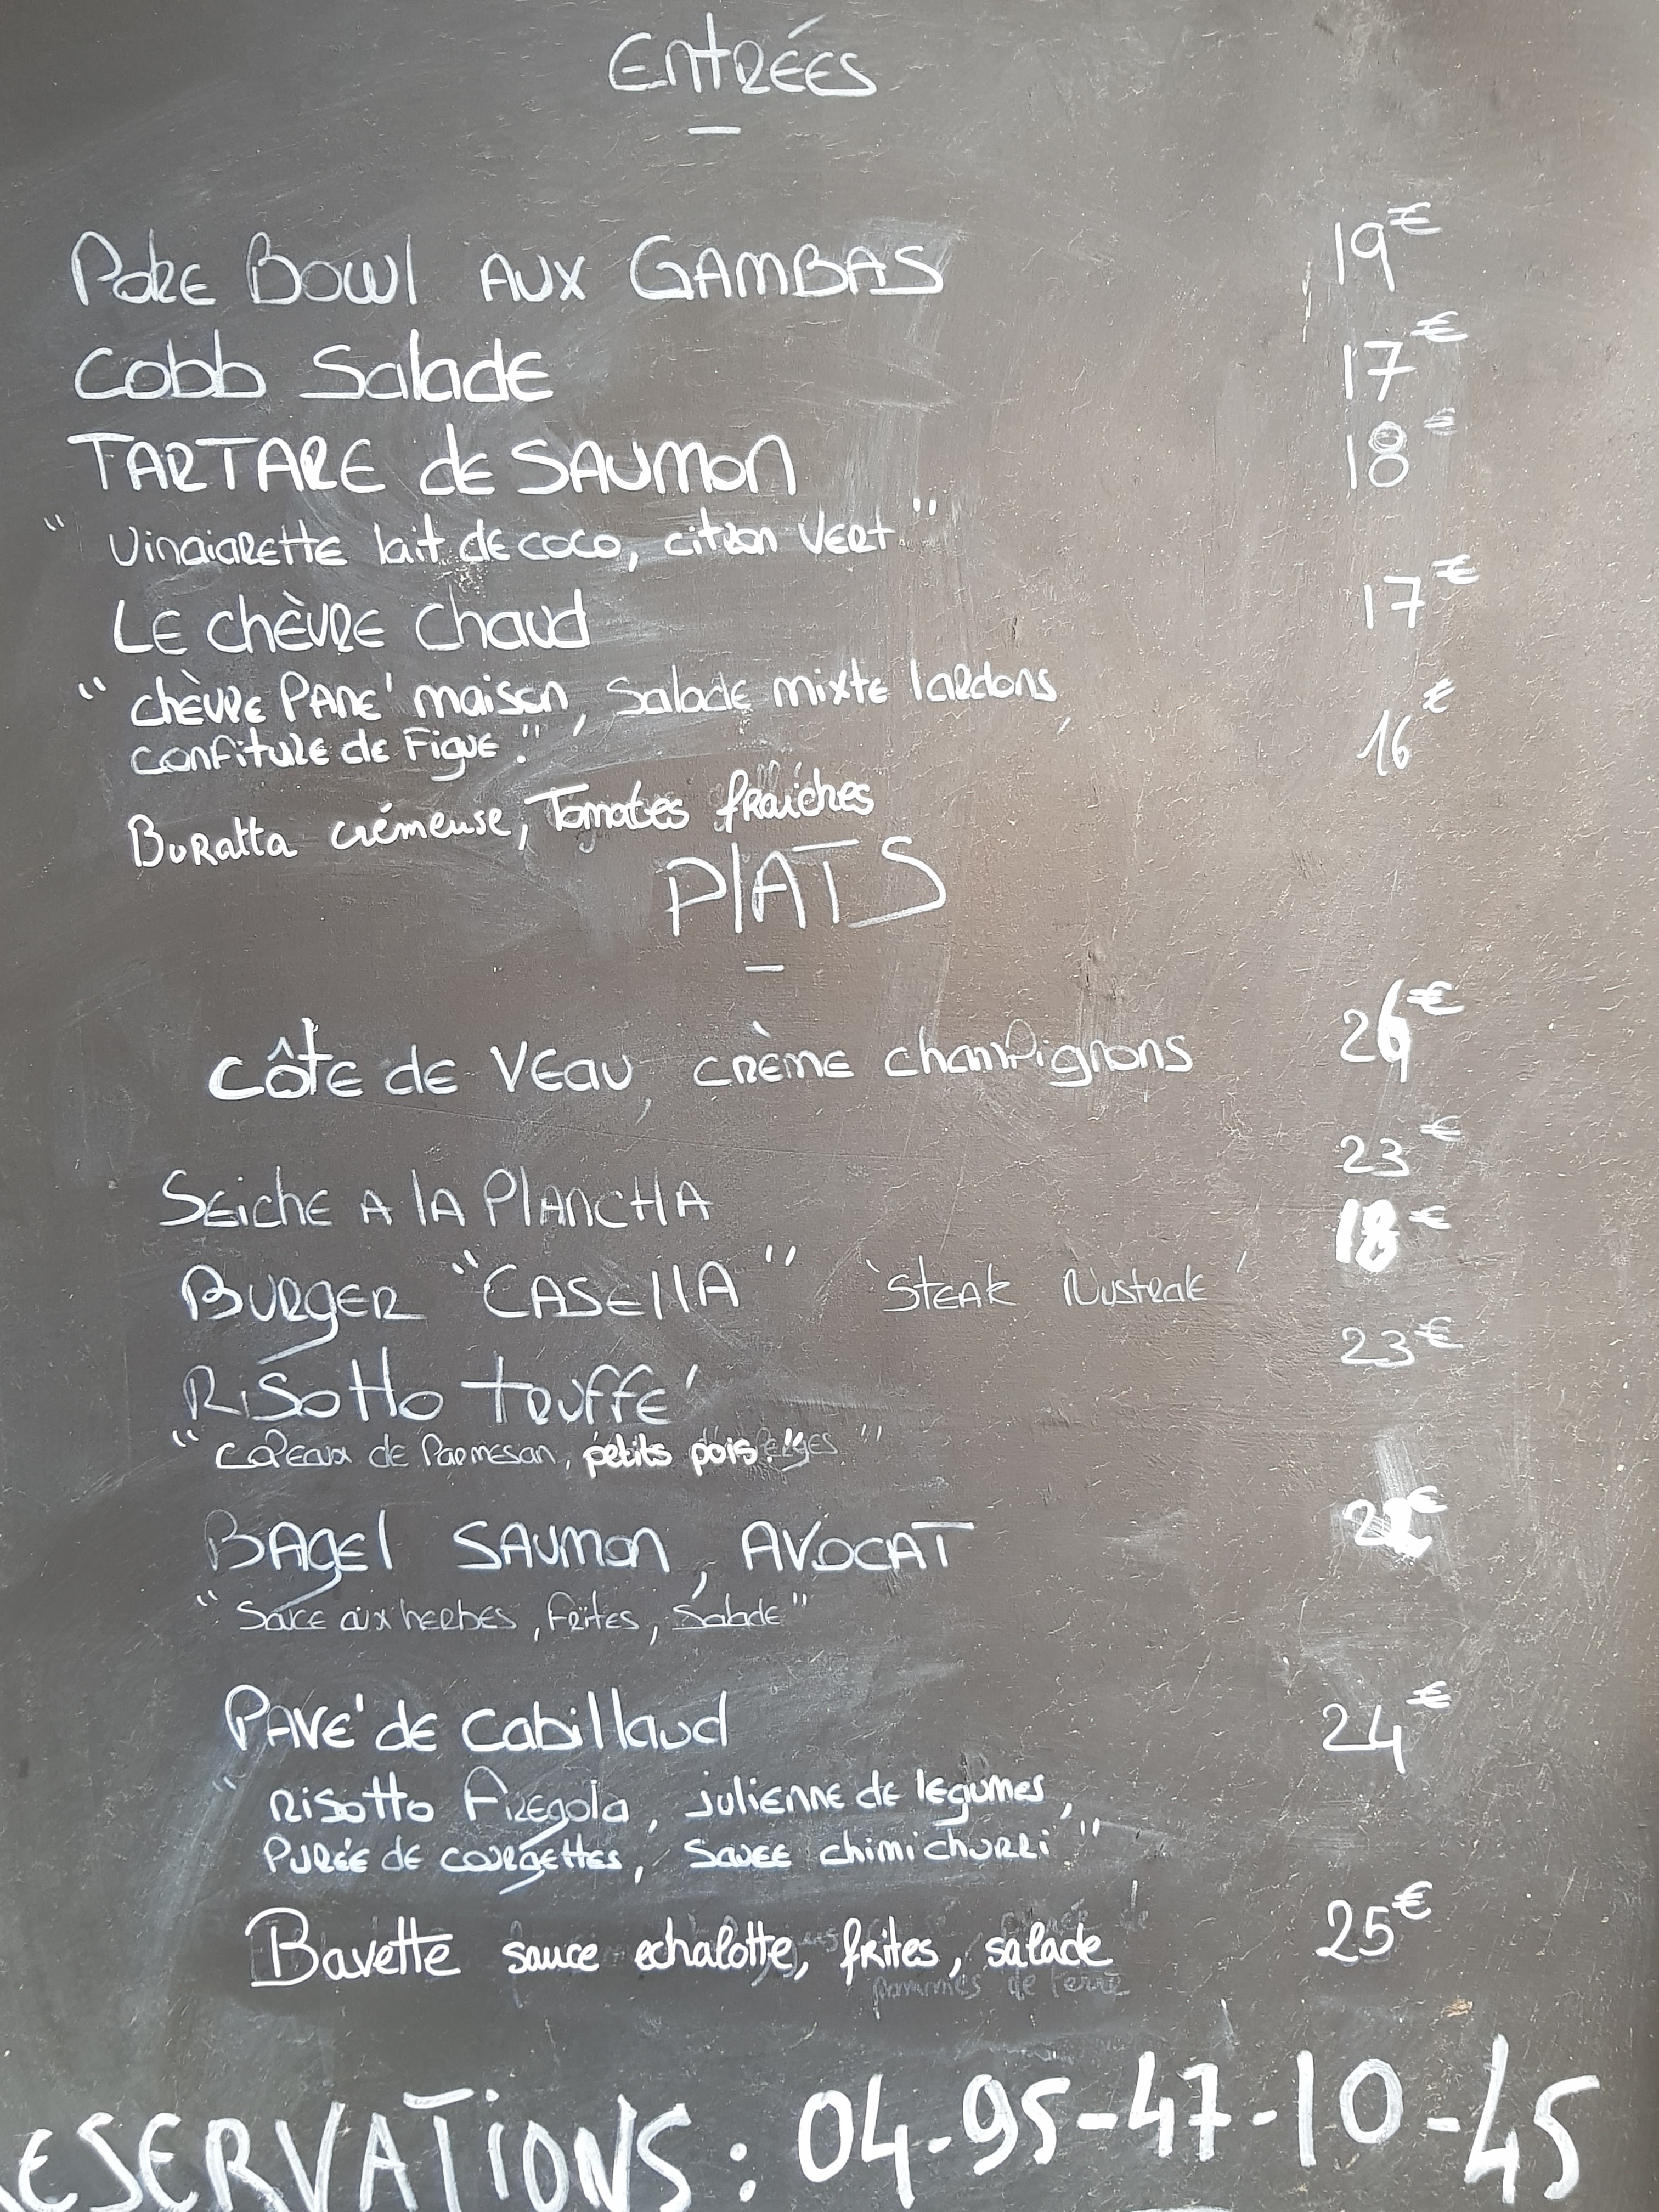 ENTRÉES
POKE BOWl AUX GAMBAS 19€
Cobb Salade 17€
TARTARE de SAUMON 18€
" Vinaigrette lait de coco, citron Vert "
LE chèvre chaud 17€
" chèvre PANé maison, Salade mixte lardons,
confiture de Figue. " 16€
Buratta crémeuse, Tomates fraiches
PlATS
côte de veau, crème champignons 26€
Seiche A lA PlANCHA 23€
BURGER "CASEllA" 'STEAK Nustrak' 18€
RiSotto truffé 23€
" copeaux de Parmesan, petits pois. "
BAgEl SAUMON, AVOCAT 22€
" Sauce aux herbes, frites, Salade "
PAVé de Cabillaud 24€
" Risotto Fregola, julienne de legumes,
Purée de courgettes, Sauce chimichurri "
Bavette sauce echalotte, frites, salade 25€
ESERVATiONS : 04-95-47-10-45